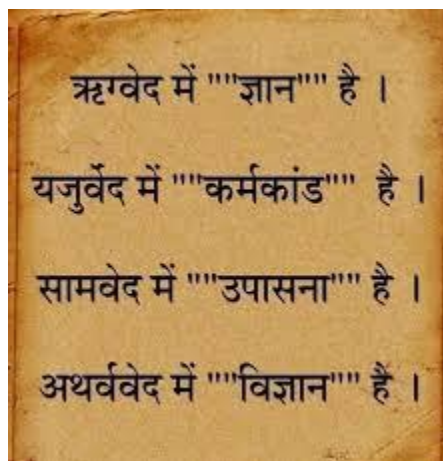 ऋग्वेद में ""ज्ञान"" है ।
यजुर्वेद में ""कर्मकांड"" है ।
सामवेद में ""उपासना"" है ।
अथर्ववेद में ""विज्ञान"" है ।